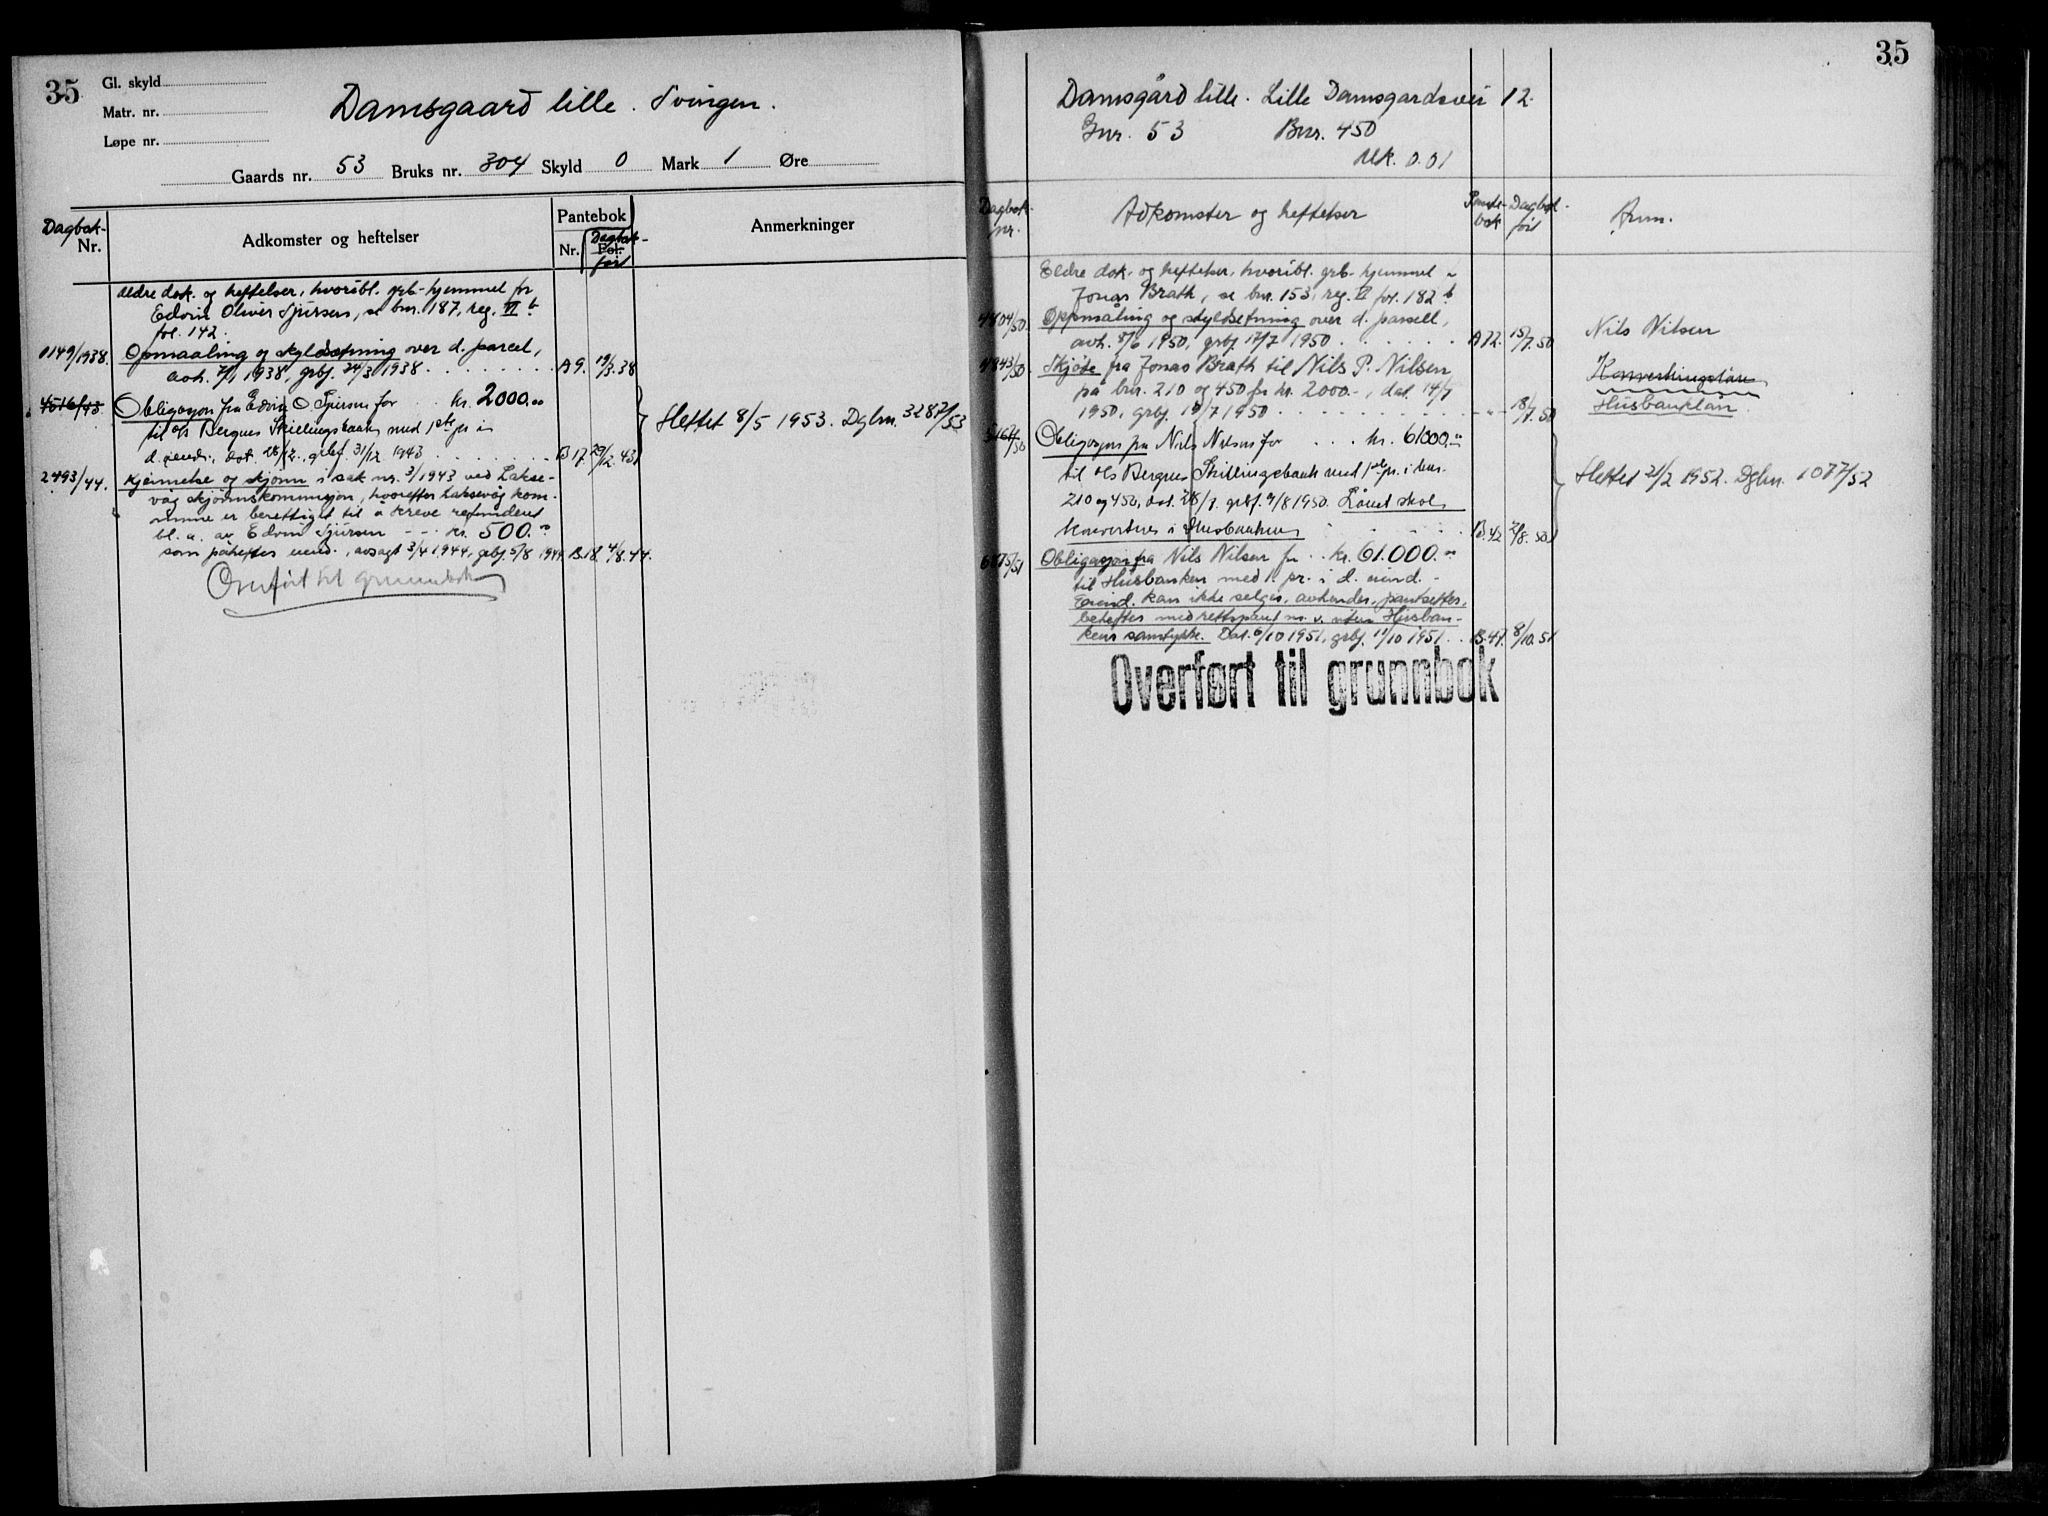 35
Gl. skyld
Matr. nr.
Løpe nr.
Damsgaard lille. Svingen.
Gaards nr. 53 Bruks nr. 304 Skyld 0 Mark 1 Øre
Dagbok-
Nr.
Adkomster og heftelser
Pantebok
Nr.
Dagbok-
Fol.
ført
Anmerkninger
Aeldre dok. og heftelser, hvoribl. grb-hjemmel for
Edvin Oliver Sjursen, se bnr. 187, reg. VI b
fol. 142.
1149/1938. Opmaaling og skyldsetning over d. parcel,
avh. 7/1 1938, grbj. 24/3 1938 A 9. 19/3.38
4516/43. Obligasjon fra Edvin O. Sjursen for kr. 2000.00
til A/s Bergens Skillingsbank med 1ste pr. i
d. eiend., dat. 28/12, grbf. 31/12 1943 B 17. 29/12.43
Slettet 8/5 1953. Dgbnr. 3287/53
2493/44. Kjennelse og skjønn i sak nr. 3/1943 ved Lakse-
våg skjønnskommisjon, hvorefter Laksevåg kom-
mune er berettiget til å kreve refundert
bl. a. av Edvin Sjursen kr. 500.00
som påheftes eiend., avsagt 3/4 1944, grbj 5/8 1944 B.18. 4/8.44.
Overført til grunnbok
35
Damsgård lille. Lille Damsgardsvei 12.
Gnr. 53 Bnr. 450
Mk. 0.01
Dagbok-
nr.
Adkomster og heftelser
Pante-
bok
Dagbok-
ført
Anm.
Eldre dok. og heftelser, hvoribl. grb-hjemmel
Jonas Brath, se bnr. 153, reg. VI fol. 182 b
4804/50. Oppmåling og skyldsetning over d. parsell,
avh. 8/6 1950, grbj 17/7 1950 A 72. 15/7.50
Nils Nilsen
4843/50. Skjøte fra Jonas Brath til Nils P. Nilsen
på bnr. 210 og 450 for kr. 2000.-, dat. 14/7
1950, grbj. 19/7 1950 - " - 18/7.50
Konverteringslån
Husbanklån
5164/50 Obligasjon fra Nils Nilsen for kr. 61000.00
til A/s Bergens Skillingsbank med 1ste pr. i bnr.
210 og 450, dat. 28/7, grbf. 4/8 1950. Lånet skal
konverteres i Husbanken B.42 2/8.50
Slettet 21/2 1952. Dgbnr. 1077/52
6875/51 Obligasjon fra Nils Nilsen for kr. 61.000.00
til Husbanken med 1. pr. i d. eiend. -
Eiend. kan ikke selges, avhendes, pantsettes,
beheftes med rettspant m. v. uten Husban-
kens samtykke. Dat. 6/10 1951, grbj. 11/10 1951 B.47. 8/10.51
Overført til grunnbok